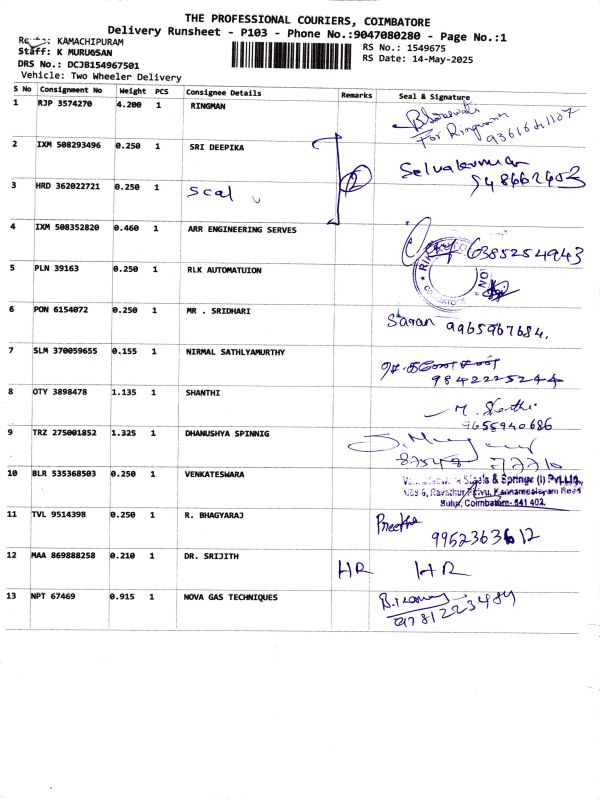 THE PROFESSIONAL COURIERS, COIMBATORE
Delivery Runsheet - P103 - Phone No.:9047080280 - Page No.:1
KAMACHIPURAM RS No.: 1549675
Staff: K MURUGSAN RS Date: 14-May-2025
DRS No.: DCJB154967501
Vehicle: Two Wheeler Delivery
S No Consignment No Weight PCS Consignee Details Remarks Seal & Signature
1 RJP 3574270 4.200 1 RINGMAN
For Ringman
2 IXM 508293496 0.250 1 SRI DEEPIKA Selvakumar
3 HRD 362022721 0.250 1 Scal 2
4 IXM 508352820 0.460 1 ARR ENGINEERING SERVES 6385254943
5 PLN 39163 0.250 1 RLK AUTOMATUION
6 PON 6154072 0.250 1 MR . SRIDHARI Saran 9965967684.
7 SLM 370059655 0.155 1 NIRMAL SATHLYAMURTHY
9842225244
8 OTY 3898478 1.135 1 SHANTHI
9655940686
9 TRZ 275001852 1.325 1 DHANUSHYA SPINNIG
87548 77710
10 BLR 535368503 0.250 1 VENKATESWARA Steels & Springs (I) Pvt.Ltd.
Kannampalayam Road
Sulur, Coimbatore- 641 402.
11 TVL 9514398 0.250 1 R. BHAGYARAJ Preetha
9952363612
12 MAA 869888258 0.210 1 DR. SRIJITH HR HR
13 NPT 67469 0.915 1 NOVA GAS TECHNIQUES
9781223484